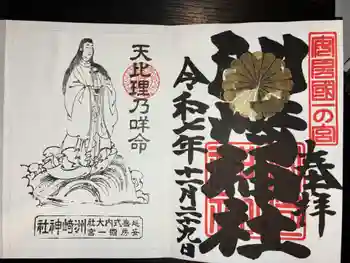 安房國一の宮
奉拝
洲崎神社
令和七年十一月二九日
天比理乃咩命
延喜式内大社
安房國一宮
洲崎神社